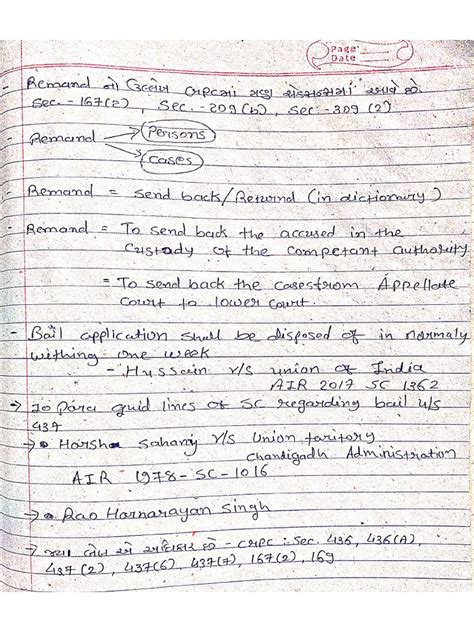 Page
Date
- Remand નો ઉલ્લેખ CRPCમાં ત્રણ સેક્સનમાં આવે છે.
Sec. - 167(2), Sec. - 209(b), Sec - 309 (2)
- Remand Persons
Cases
- Remand = Send back/Returnd (in dictionary)
- Remand = To send back the accused in the
Custody of the competant authority
= To send back the casesfrom Appellate
Court to lower court.
- Bail application shall be disposed of in normaly
withing one week
- Hussain v/s union of India
AIR 2017 SC 1362
→ 10 para guid lines of SC regarding bail u/s
437
→ Harsh Sahany v/s Union taritory
Chandigadh Administration
AIR 1978-SC-1016
→ Rao Harnarayan Singh
→ જ્યાં બેલ એ અધિકાર છે - CRPC : Sec. 436, 436(A),
437(2), 437(6), 437(7), 167(2), 169